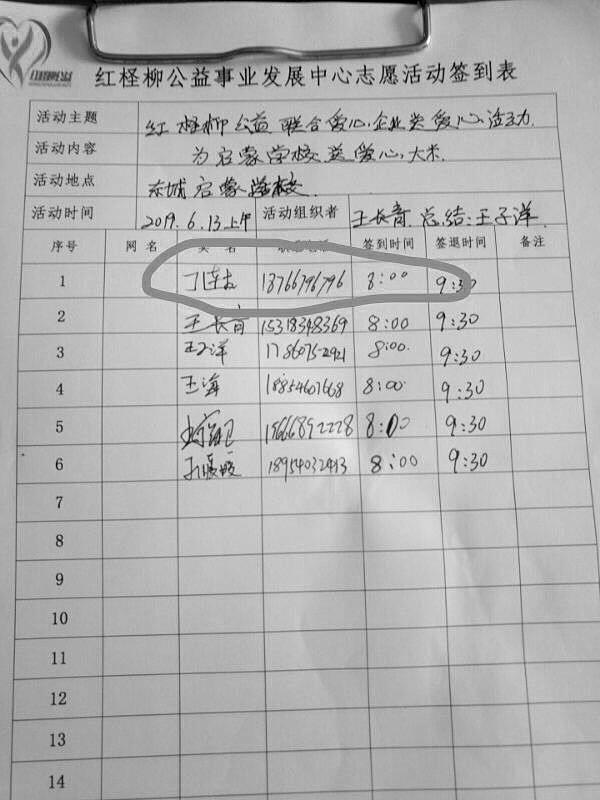 红柽柳公益事业发展中心志愿活动签到表
活动主题 红柽柳公益联合爱心企业类爱心活动
活动内容 为启蒙学校送爱心大米
活动地点 东城启蒙学校
活动时间 2019.6.13上午 活动组织者 王长育 总结:王子洋
序号 网名 名 签到时间 签退时间 备注
1 18766796796 8:00 9:30
2 王长育 15318348369 8:00 9:30
3 王子洋 8:00 9:30
4 王海 18854607668 8:00 9:30
5 8:00 9:30
6 18954032413 8:00 9:30
7
8
9
10
11
12
13
14